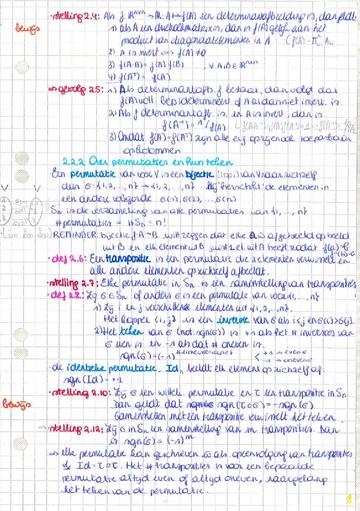 • stelling 2.4: Als f: ℝⁿˣⁿ → ℝ: A ↦ f(A) een determinantafbeelding is, dan geldt
bewijs
1) als A een driehoeksmatrix is, dan is f(A) gelijk aan het
product van diagonaalelementen in A
2) A is invert ⇔ f(A) ≠ 0
3) f(A·B) = f(A) f(B) ∀ A,B ∈ ℝⁿˣⁿ
4) f(Aᵀ) = f(A)
⇒ gevolg 2.5: 1) Als determinantafb. f bestaat, dan volgt dat
f(A) volledig bepaald en of A al dan niet invert. is.
2) Als f determinantafb. is, en A is invert, dan is
f(A⁻¹) = 1/f(A)
3) Omdat f(A) = f(Aᵀ) zijn alle eig. op rijen ook toepasbaar
op kolommen
2.2.2 Over permutaties en hun teken
Een permutatie van voor V is een bijectie van V naar zichzelf
dus σ: {1,2,...,n} → {1,2,...,n}. verschil de elementen in
een andere volgorde σ(1), σ(2), ..., σ(n)
Sn is de verzameling van alle permutaties van {1,...,n}
# permutaties = #Sn = n!
REMINDER: bijectie f: A → B, wilt zeggen dat elke
uit B en elk element uit B juist 1 el. uit A heeft zodat f(a)=b
• def 2.6: Een transpositie is een permutatie die 2 elementen verwisselt en
alle andere elementen op zichzelf afbeeldt.
• stelling 2.7: Elke permutatie in Sn is een samenstelling van transposities
• def 2.8: Zij σ ∈ Sn of anders σ is een permutatie van voor {1,...,n}
1) Zij i en j verschillende elementen uit {1,2,...,n}.
Het koppel (i,j) is een inversie van σ als i<j en σ(i)>σ(j).
2) Het teken van σ (not: sgn(σ)) is +1 als het # inversies van
σ even is en -1 als dat # oneven is.
sgn(σ) = (-1)^#inversies van σ < +1 → even σ
-1 → oneven σ
de identieke permutatie, Id, beeldt elk element op zichzelf af.
sgn(Id) = +1
• stelling 2.10: Zij σ een willek. permutatie en τ een transpositie in Sn.
bewijs
Dan geldt dat sgn(τ∘σ) = -sgn(σ)
Samenstellen met een transpositie verwisselt het teken.
• stelling 2.12: Zij σ in Sn een samenstelling van m transposities. Dan
is sgn(σ) = (-1)ᵐ
⇒ elke permutatie kan geschreven als opeenvolging van transposities
& Id = τ∘τ. Het # transposities is voor een bepaalde
permutatie altijd even of altijd oneven, naargelang
het teken van de permutatie.